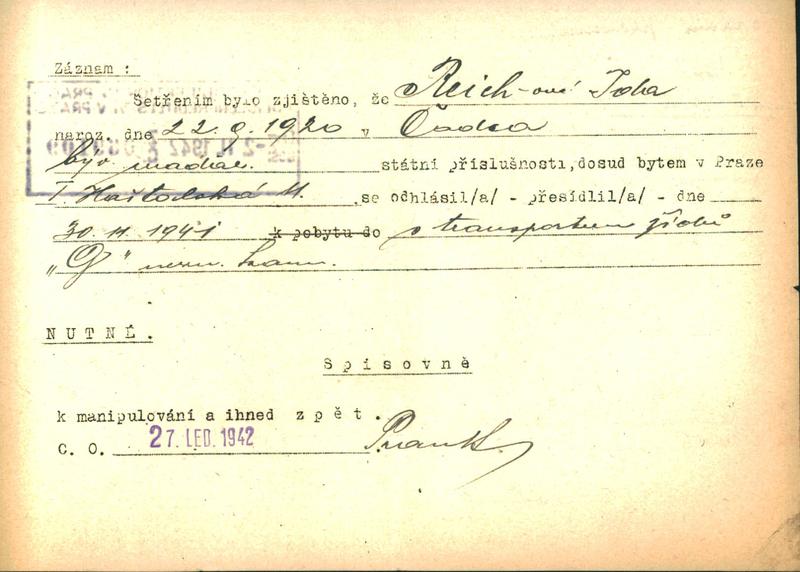 Záznam :
Šetřením bylo zjištěno, že Reich-ové Ida
naroz. dne 22.9.1920 v Čadca
býv. maďar. státní příslušnosti,dosud bytem v Praze
I. Haštalská 11. se odhlásil/a/ - přesídlil/a/ - dne
30.11.1941 k pobytu do s transportem židů
„G“ nezn. kam.
NUTNÉ.
Spisovně
k manipulování a ihned zpět.
C. O. 27. LED. 1942